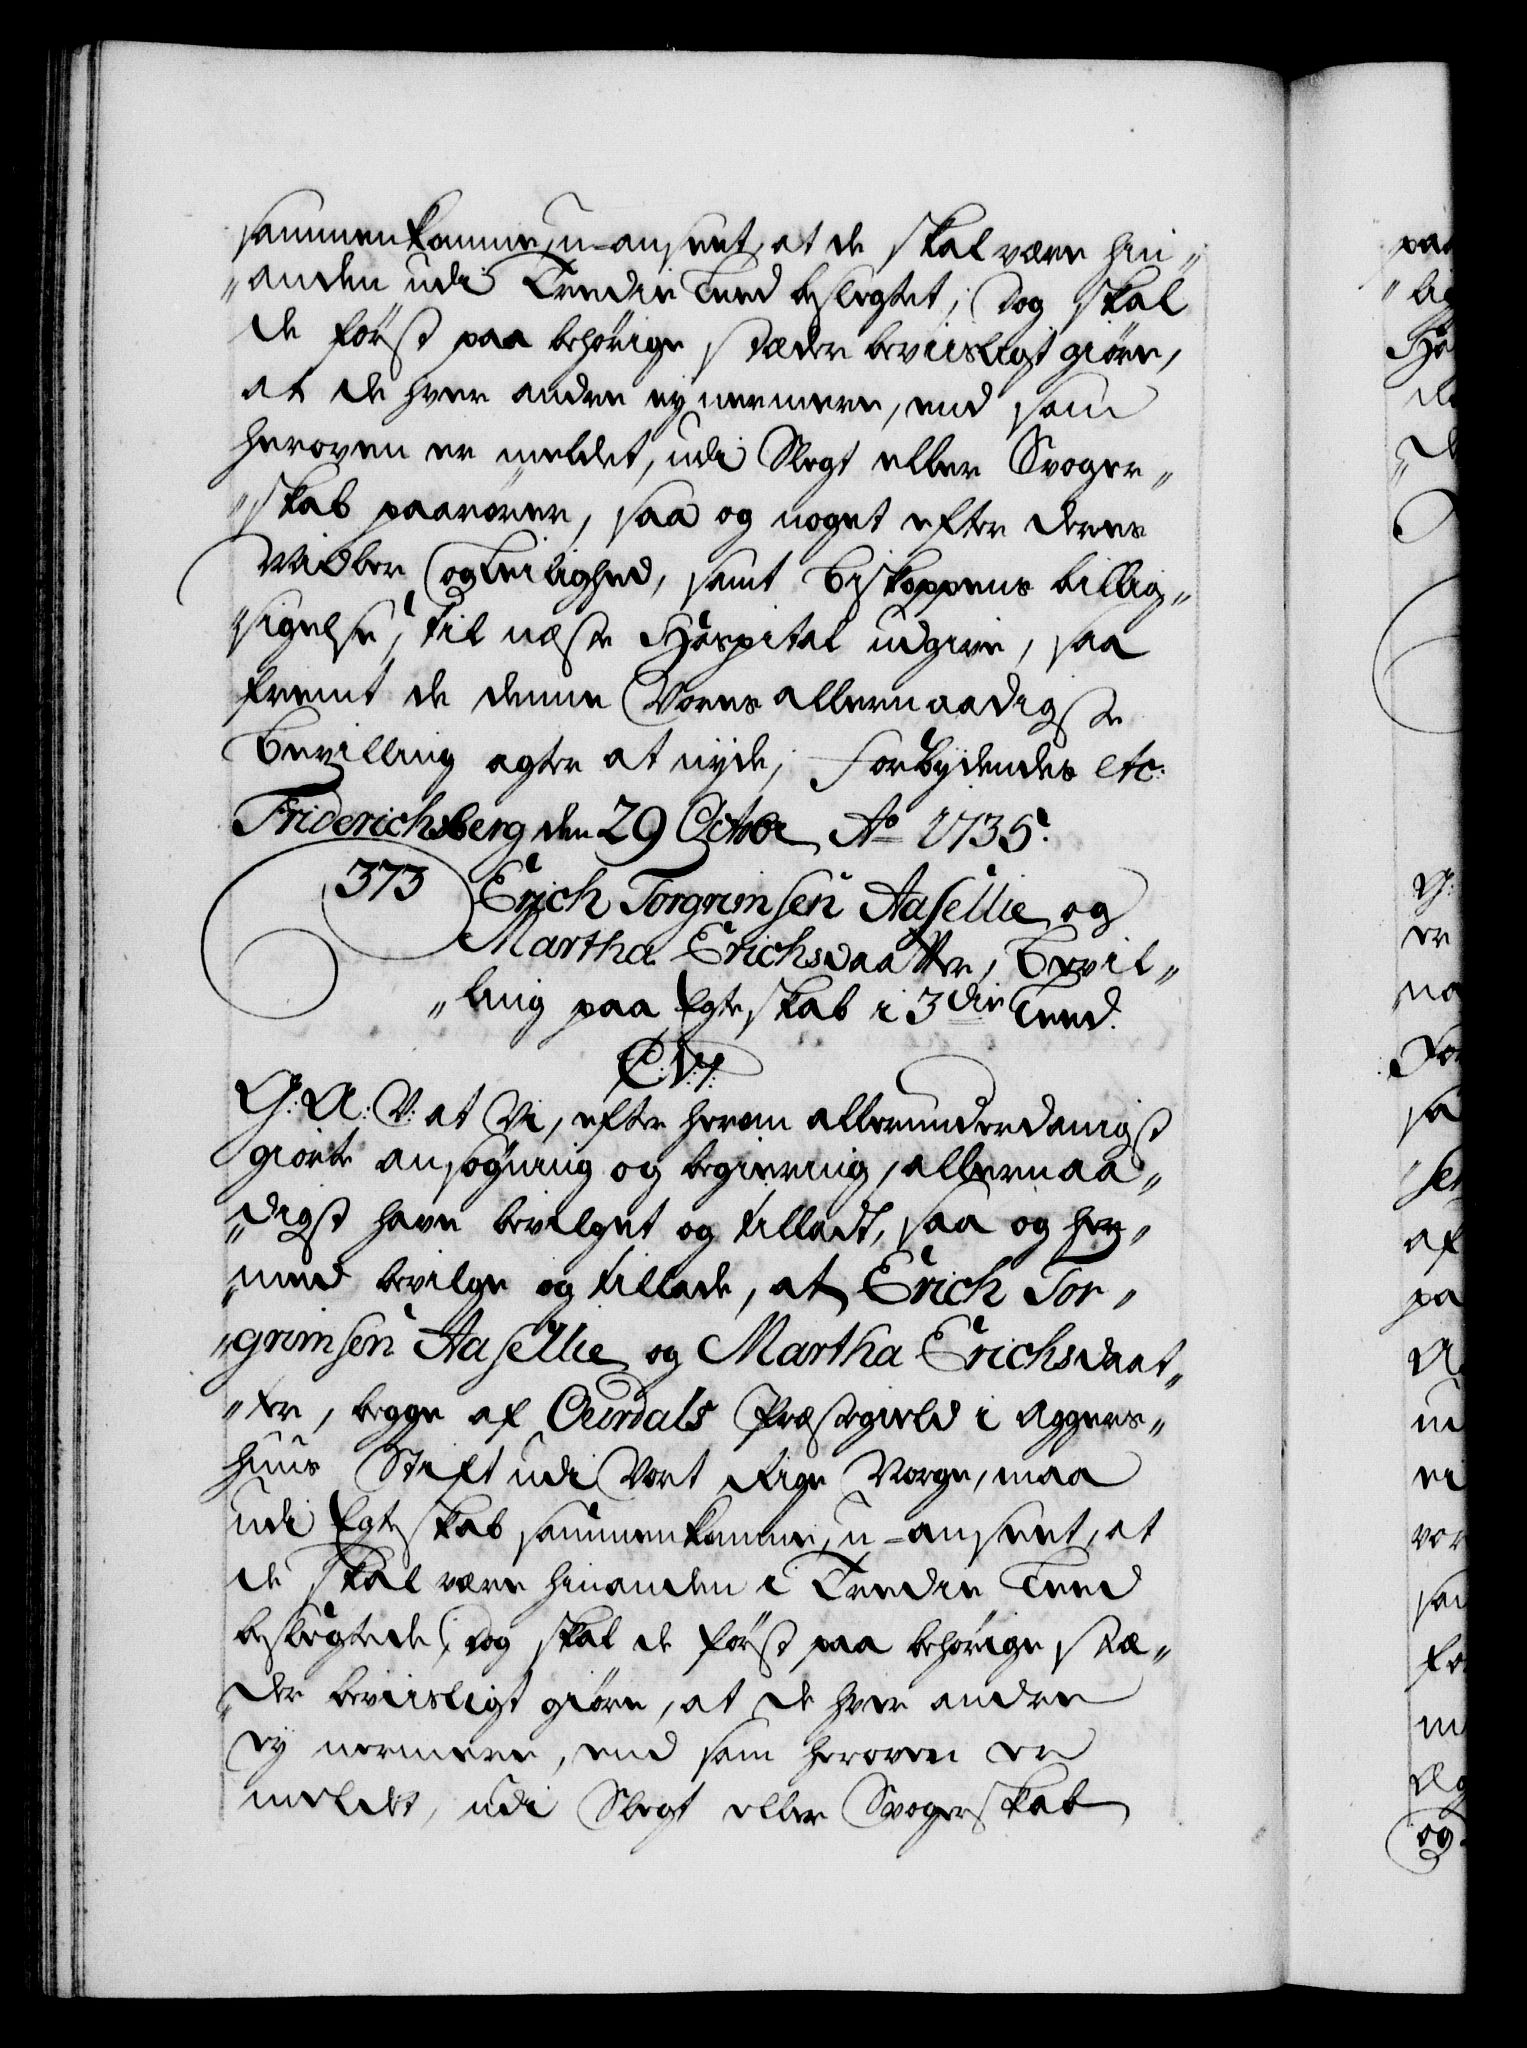 sammenkomme, u-anseet, at de skal være hin„
„anden udi Tredie Leed beslegtet; Dog skal
de först paa behörige stæder beviisligt giöre,
at de hver andre ey nermere, end som
heroven er meldet, udi Slegt eller Svoger„
„skab paarörer, saa og noget efter deres
Vilkor og Leilighed, samt Biskoppens billig„
„sigelse, til næste Hospital udgive, saa
fremt de denne Vores allernaadigste
Bevilling agter at nyde; Forbydendes etc:
Friderichsberg den 29 Octobr Ao 1735.
373 Erich Torgrimsen Aasellie og
Martha Erichsdaatter, Bevil„
„ling paa Egteskab i 3die Leed.
C: VI:
G: A: V: at Vi, efter herom allerunderdanigst
giorte ansögning og begiering, allernaa„
„digst have bevilget og tilladt, saa og her„
„med bevilge og tillade, at Erich Tor„
„grimsen Aasellie og Martha Erichsdaat„
„ter, begge af Ourdals Præstegield i Aggers„
huus Stift udi Vort Rige Norge, maa
udi Egteskab sammenkomme, u-anseet, at
de skal være hinanden i Tredie Leed
beslegtede; Dog skal de först paa behörige stæ„
„der beviisligt giöre, at de hver andre
ey nermere, end som heroven er
meldet, udi Slegt eller Svogerskab